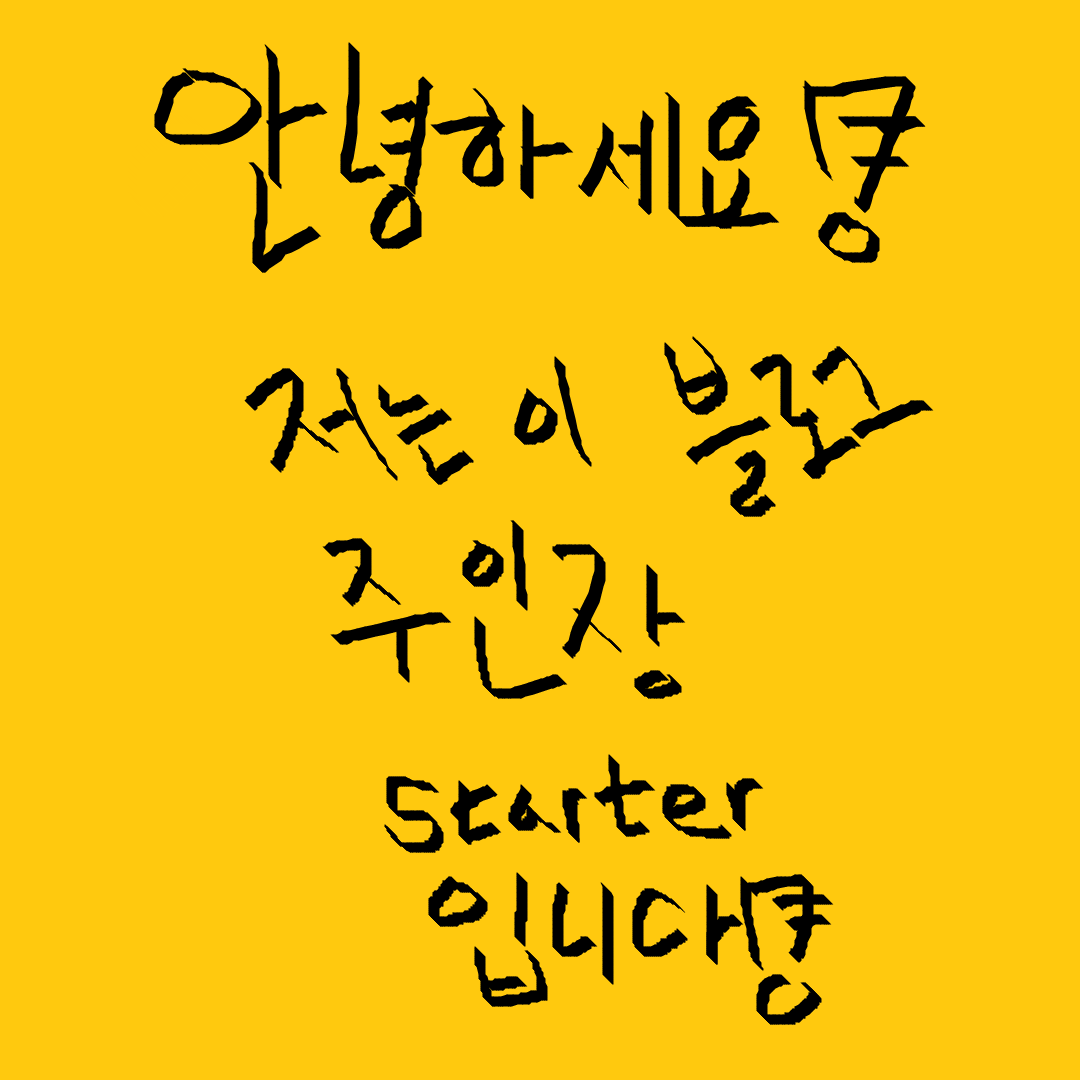 안녕하세요명
저는 이 블로그
주인장
starter
입니다명